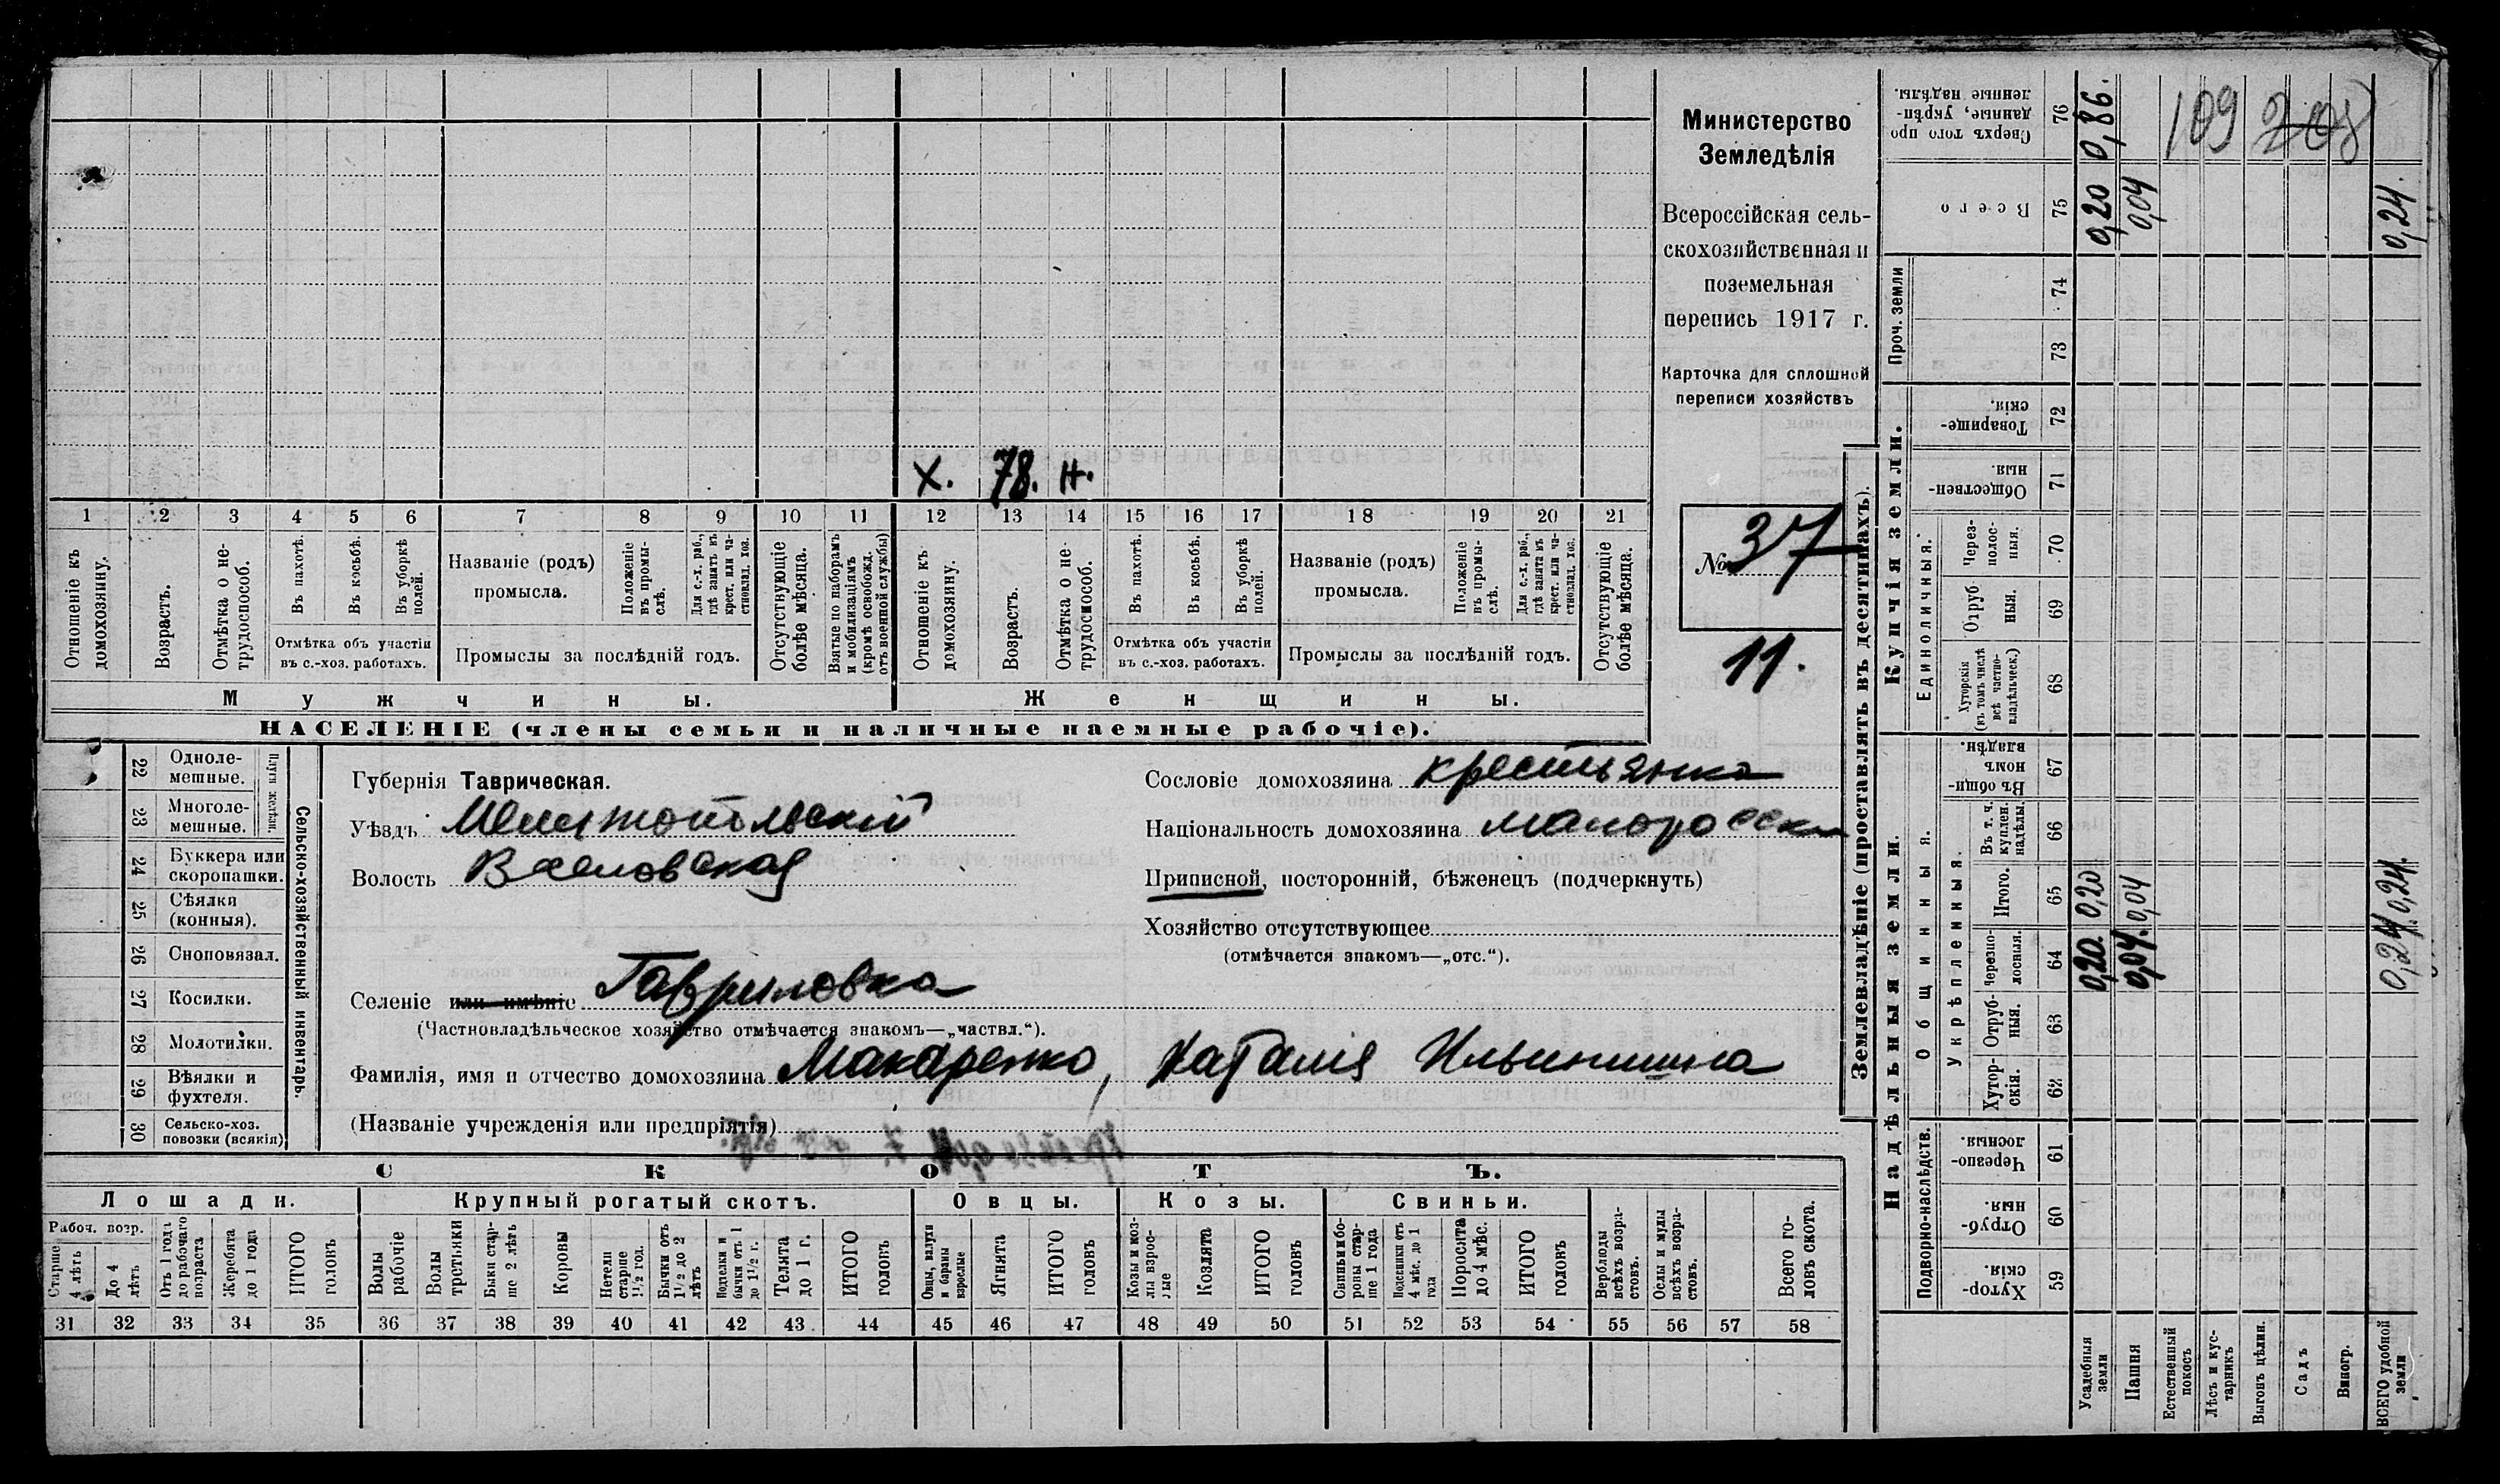 Х. 78. Н.
1 2 3 4 5 6 7 8 9 10 11 12 13 14 15 16 17 18 19 20 21
Отношеніе къ домохозяину.
Возрастъ.
Отмѣтка о не-трудоспособ.
Въ пахотѣ.
Въ косьбѣ.
Въ уборкѣ полей.
Отмѣтка объ участіи
въ с.-хоз. работахъ.
Названіе (родъ)
промысла.
Положеніе въ промы-слѣ.
Для с.-х. раб., гдѣ занятъ въ крест. или ча-стновлад. хоз.
Промыслы за послѣдній годъ.
Отсутствующіе болѣе мѣсяца.
Взятые по наборамъ и мобилизаціямъ (кромѣ освобожд. отъ военной службы)
Отношеніе къ домохозяину.
Возрастъ.
Отмѣтка о не-трудоспособ.
Въ пахотѣ.
Въ косьбѣ.
Въ уборкѣ полей.
Отмѣтка объ участіи
въ с.-хоз. работахъ.
Названіе (родъ)
промысла.
Положеніе въ промы-слѣ.
Для с.-х. раб., гдѣ занята въ крест. или ча-стновлад. хоз.
Промыслы за послѣдній годъ.
Отсутствующіе болѣе мѣсяца.
Мужчины.
Женщины.
НАСЕЛЕНІЕ (члены семьи и наличные наемные рабочіе).
Министерство
Земледѣлія
Всероссійская сель-
скохозяйственная и
поземельная
перепись 1917 г.
Карточка для сплошной
переписи хозяйствъ
№ 37
11.
22 Одноле-мешные.
23 Многоле-мешные.
Плуги желѣзн.
24 Буккера или скоропашки.
25 Сѣялки (конныя).
26 Сноповязал.
27 Косилки.
28 Молотилки.
29 Вѣялки и фухтеля.
30 Сельско-хоз. повозки (всякія)
Сельско-хозяйственный инвентарь.
Губернія Таврическая.
Уѣздъ Мелитопольскій
Волость Веселовская
Сословіе домохозяина крестьянка
Національность домохозяина малоросска
Приписной, посторонній, бѣженецъ (подчеркнуть)
Хозяйство отсутствующее
(отмѣчается знакомъ—„отс.“).
Селеніе или имѣніе Гавриловка
(Частновладѣльческое хозяйство отмѣчается знакомъ—„частвл.“).
Фамилія, имя и отчество домохозяина Макаренко, Наталія Ильинишна
(Названіе учрежденія или предпріятія)
СКОТЪ.
Лошади. Крупный рогатый скотъ. Овцы. Козы. Свиньи.
Рабоч. возр.
Старше 4 лѣтъ
До 4 лѣтъ
Отъ 1 года до рабочаго возраста
Жеребята до 1 года
ИТОГО головъ
Волы рабочіе
Волы третьяки
Быки стар-ше 2 лѣтъ
Коровы
Нетели старше 1½ год.
Бычки отъ 1½ до 2 лѣтъ
Подтелки и бычки отъ 1 до 1½ г.
Телята до 1 г.
ИТОГО головъ
Овцы, валухи и бараны взрослые
Ягнята
ИТОГО головъ
Козы и коз-лы взрос-лые
Козлята
ИТОГО головъ
Свиньи и бо-ровы стар-ше 1 года
Подсвинки отъ 4 мѣс. до 1 года
Поросята до 4 мѣс.
ИТОГО головъ
Верблюды всѣхъ возра-стовъ.
Ослы и мулы всѣхъ возра-стовъ.
Всего го-ловъ скота.
31 32 33 34 35 36 37 38 39 40 41 42 43 44 45 46 47 48 49 50 51 52 53 54 55 56 57 58
Землевладѣніе (проставлять въ десятинахъ).
Сверхъ того про даные, укрѣп-ленные надѣлы. 76 0,86.
109 208
Всего 75 0,20 0,04 0,24.
Проч. земли 74
73
Купчія земли.
Товарище-скія. 72
Обществен-ныя. 71
Единоличныя.
Через-полос-ныя. 70
Отруб ныя. 69
Хуторскія (въ томъ числѣ всѣ частно-владѣльческ.) 68
Надѣльныя земли.
Общинныя.
Въ общи-номъ владѣн. 67
Укрѣпленныя.
Въ т. ч. куплен. надѣлы. 66
Итого. 65 0,20 0,04 0,24.
Черезпо-лосныя. 64 0,20. 0,04. 0,24
Отруб-ныя. 63
Хутор-скія. 62
Подворно-наслѣдств.
Черезпо-лосныя. 61
Отруб-ныя. 60
Хутор-скія. 59
Усадебныя земли
Пашня
Естественный покосъ
Лѣсъ и кус-тарникъ
Выгонъ цѣлин.
Садъ
Виногр.
ВСЕГО удобной земли